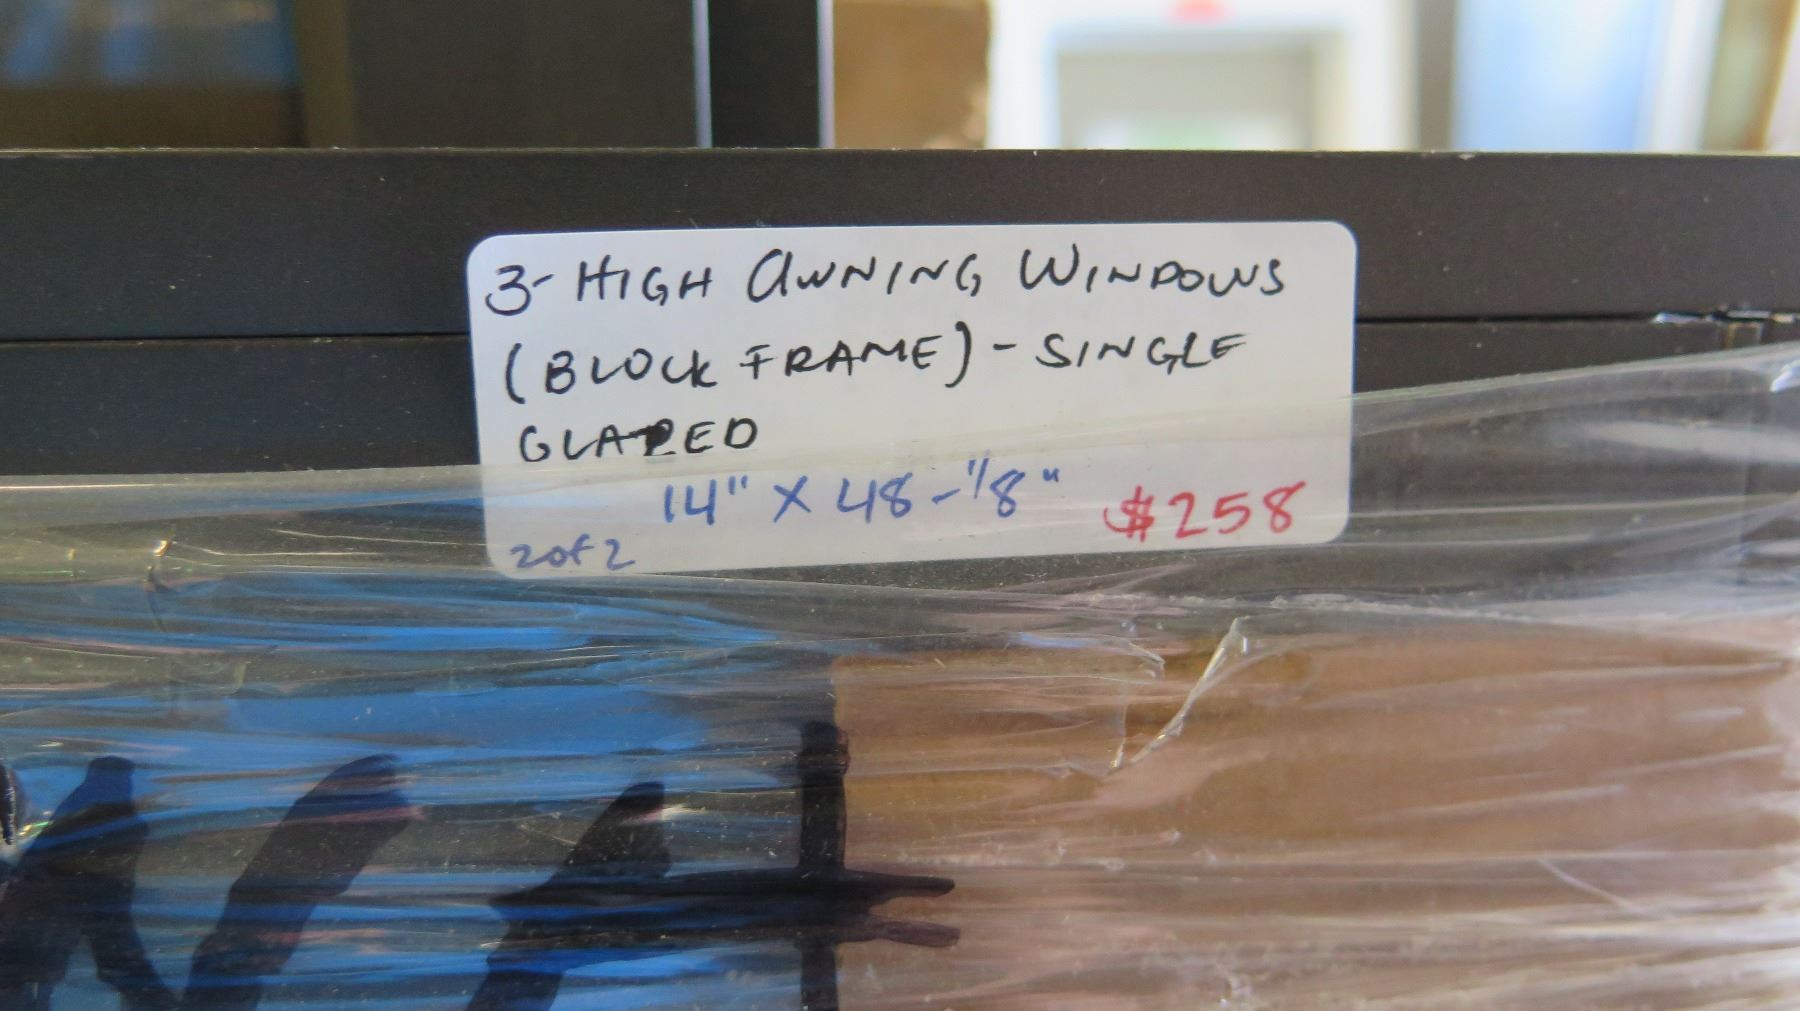 3- HIGH AWNING WINDOWS
(BLOCK FRAME) - SINGLE
GLAZED
14" X 48-1/8" $258
2 of 2